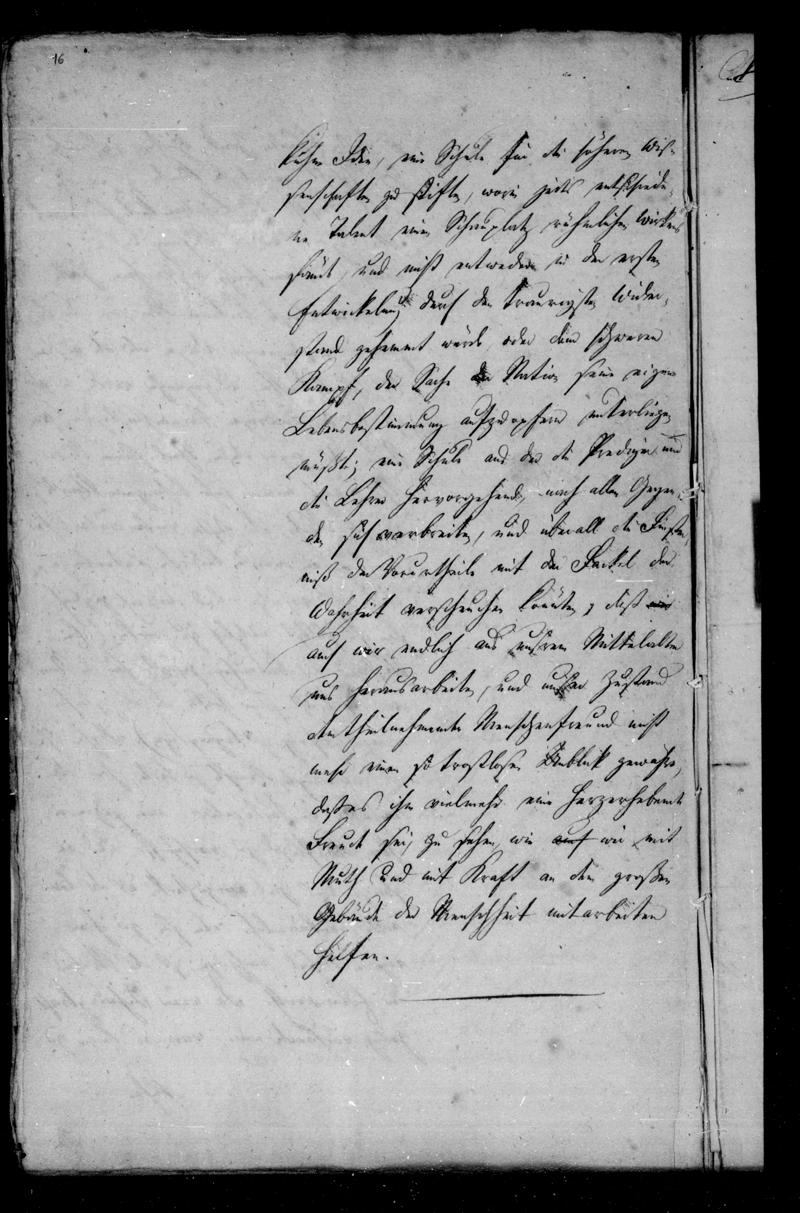 16
kühne Idee, eine Schule für die höhern Wis-
senschaften zu stiften, worin jedes entschiede-
ne Talent einen Schauplatz rühmlichen Wirkens
fände, und nicht entweder in der ersten
Entwickelung durch den traurigsten Wider-
stand gehemmt würde, oder dem schweren
Kampf, der Sache der Nation seine eigene
Lebensbestimmung aufzuopfern unterliegen
müßte; eine Schule aus der die Prediger und
die Lehrer hervorgehend, nach allen Gegen-
den sich verbreiten, und überall die Finster-
niß der Vorurtheile mit der Fackel der
Wahrheit verscheuchen könnten; daß wir
auch wir endlich aus unserem Mittelalter
uns herausarbeiten, und unser Zustand
dem theilnehmenden Menschenfreund nicht
mehr einen so trostlosen Anblick gewähre,
daß es ihm vielmehr eine herzerhebende
Freude sei, zu sehen, wie auch wir mit
Muth und mit Kraft an dem großen
Gebäude der Menschheit mitarbeiten
helfen.